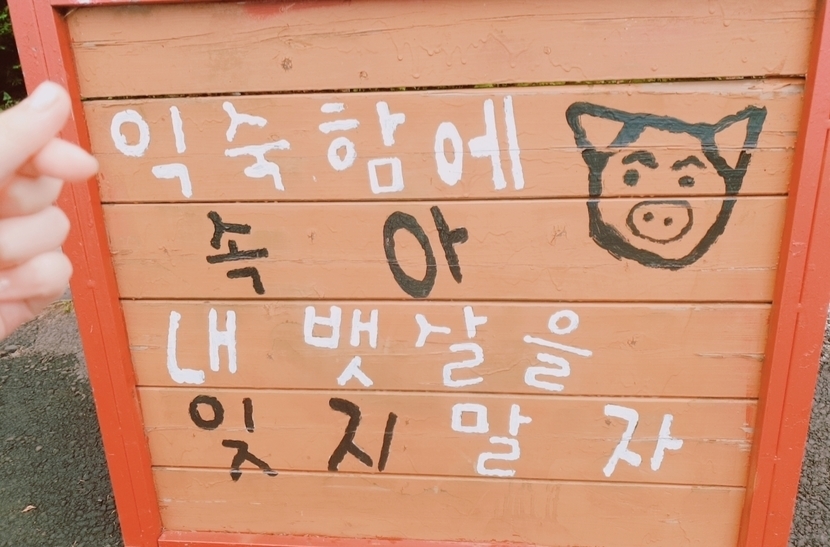 익숙함에
속아
내 뱃살을
잊지말자